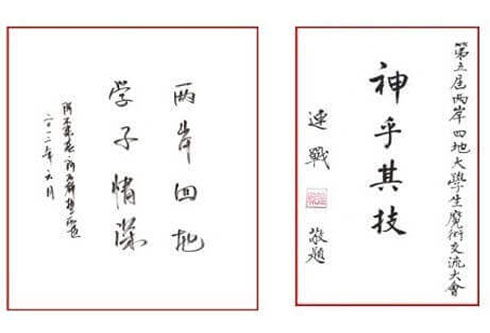 两岸四地
学子情深
二〇一二年六月
第五屆兩岸四地大學生魔術交流大會
神乎其技
連戰
敬題